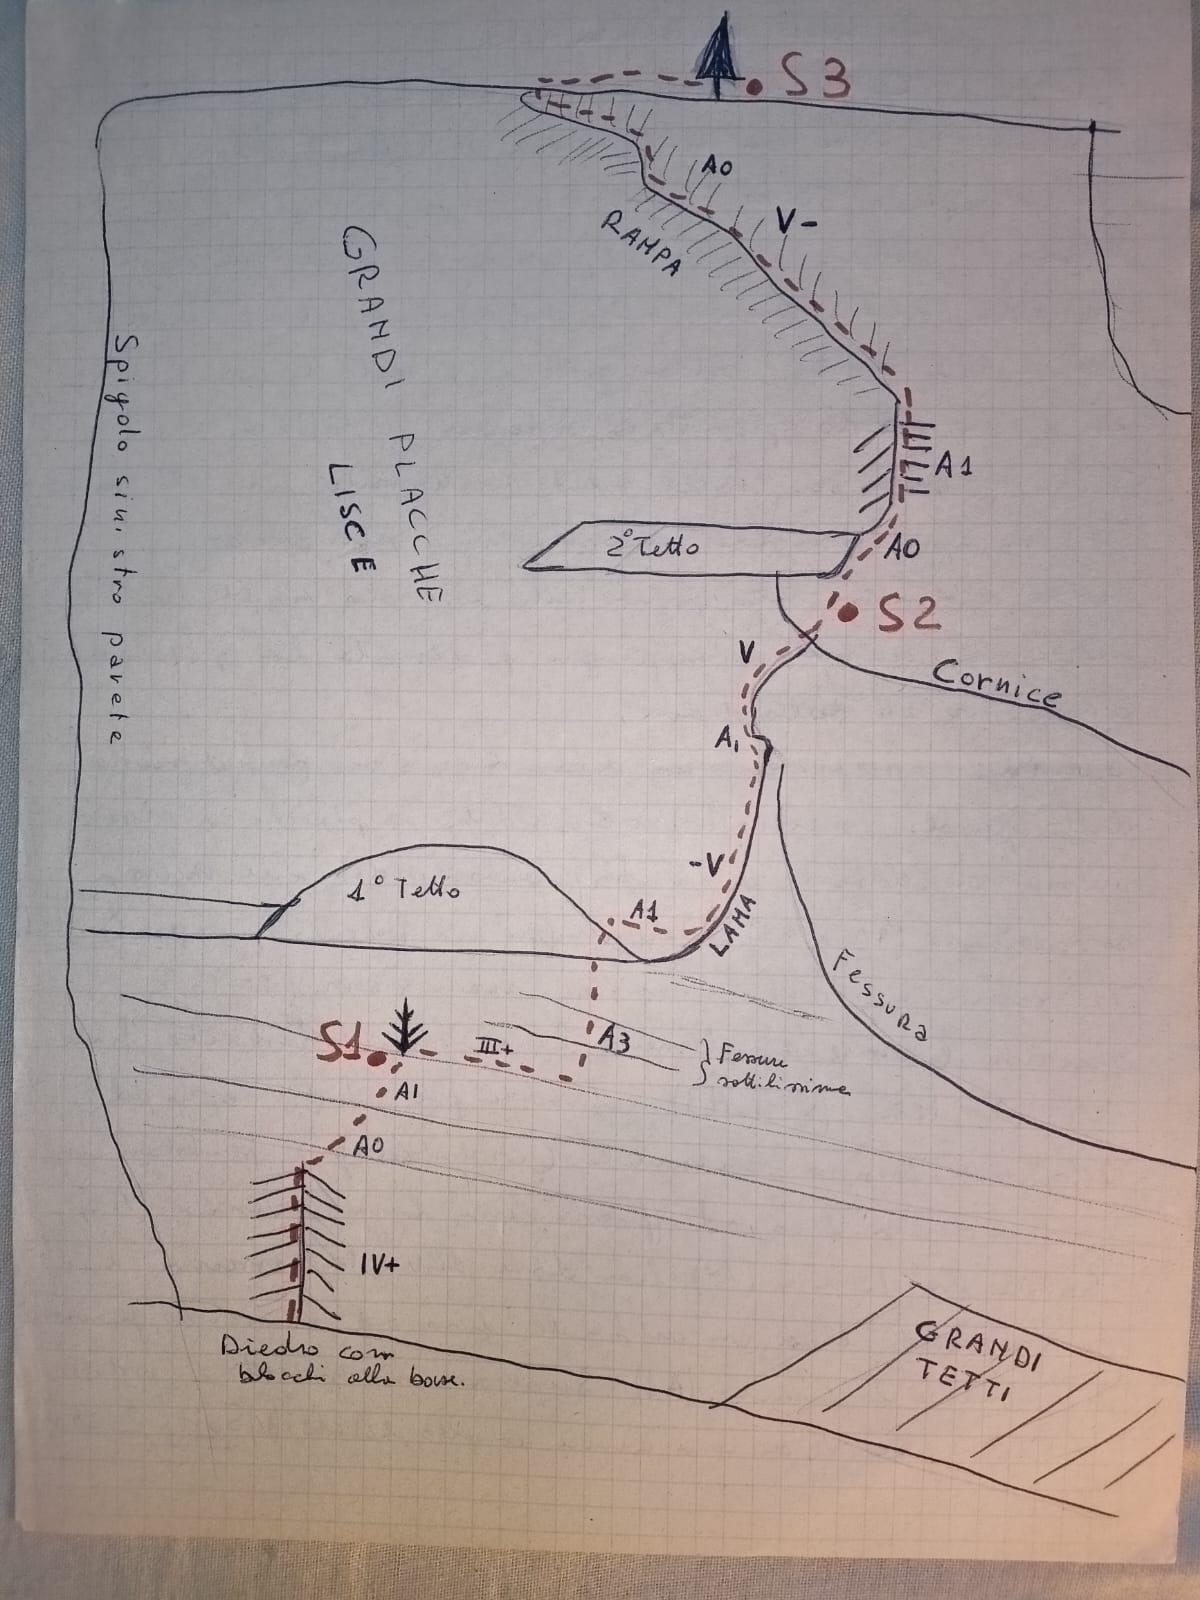 S3
A0
V-
RAMPA
GRANDI PLACCHE
LISCE
Spigolo sinistro parete
A1
2° Tetto
A0
S2
V
Cornice
A1
-V
1° Tetto
A1
LAMA
Fessura
S1
III+
A3
Fessure
sottilissime
A1
A0
IV+
Diedro con
blocchi alla base.
GRANDI
TETTI